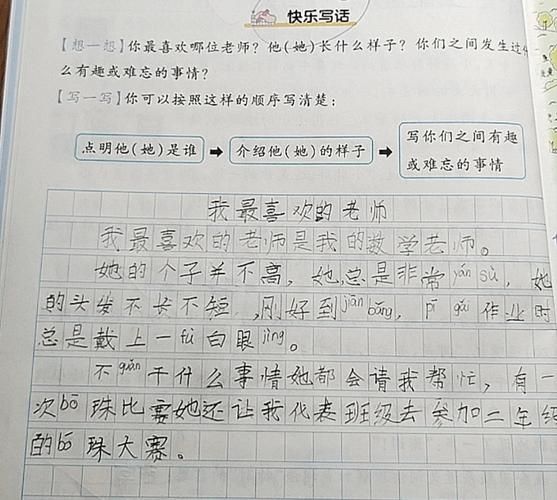 快乐写话
【想一想】你最喜欢哪位老师？他(她)长什么样子？你们之间发生过什
么有趣或难忘的事情？
【写一写】你可以按照这样的顺序写清楚：
点明他(她)是谁 → 介绍他(她)的样子 → 写你们之间有趣
或难忘的事情
我最喜欢的老师
我最喜欢的老师是我的数学老师。
她的个子并不高，她总是非常yán sù，她
的头发不长不短，刚好到jiān bǎng，pī gǎi作业时
总是戴上一fù白眼jìng。
不guǎn干什么事情她都会请我帮忙，有一
次bō珠比赛她还让我代表班级去参加二年级
的bō珠大赛。